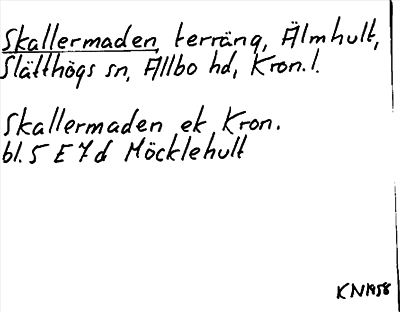 Skallermaden, terräng, Älmhult,
Slätthögs sn, Allbo hd, Kron.l.
Skallermaden ek Kron.
bl. 5 E 7 d Möcklehult
KN 1958